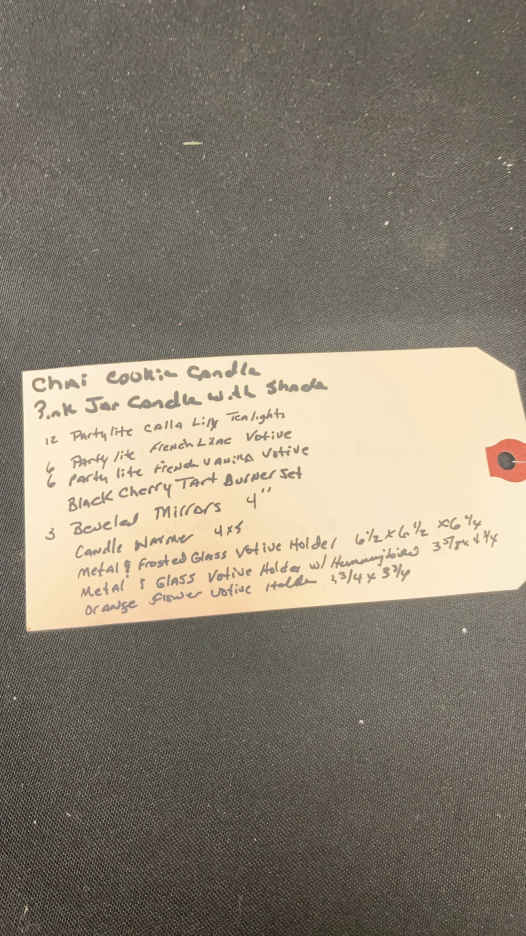 Chai Cookie Candle
Pink Jar Candle with Shade
12 Partylite Calla Lily Tealights
6 Party lite French Lilac Votive
6 Party lite French Vanilla Votive
Black Cherry Tart Burner Set
3 Beveled Mirrors 4"
Candle Warmer 4x5
Metal & Frosted Glass Votive Holder 6 1/2 x 6 1/2 x 6 1/4
Metal & Glass Votive Holder w/ Hummingbird 3 5/8 x 4 1/4
Orange Flower Votive Holder 3/4 x 3 3/4